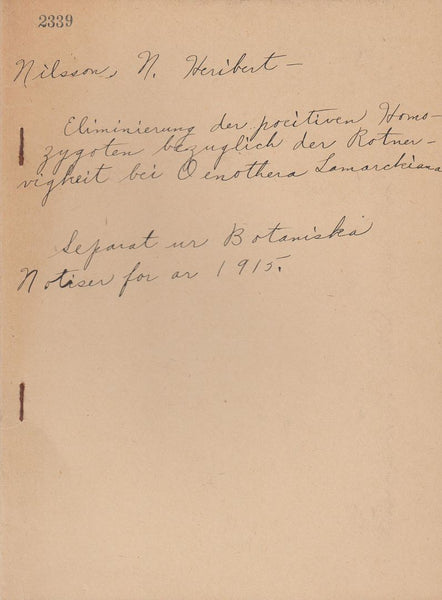 2339
Nilsson, N. Heribert —
Eliminierung der pocitiven Homo-
zygoten bezuglich der Rotner-
vigheit bei Oenothera Lamarckiana
Separat ur Botaniska
Notiser for ar 1915.